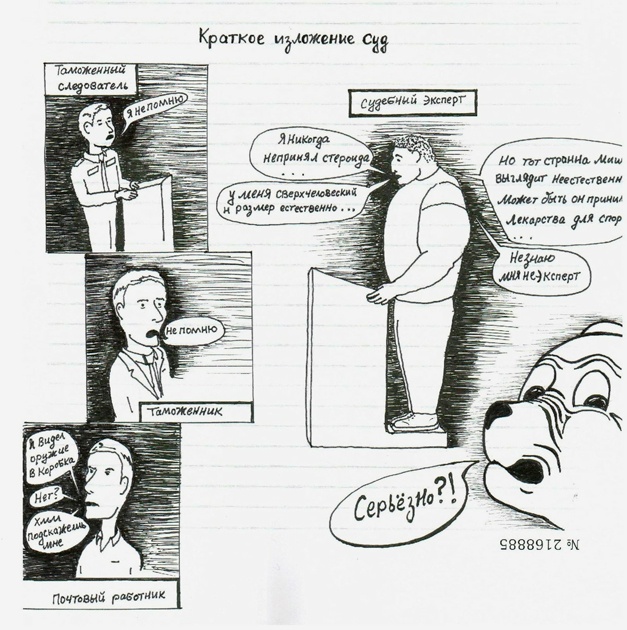 Краткое изложение суд
Таможенный
следователь
Я непомню
Судебный эксперт
Я никогда
непринял стероида
. . .
У меня сверхчеловеский
и размер естественно ...
Но тот странна Миш
выглядит неестественн
Может быть он прини
лекарства для спор
. . .
Незнаю
мня не эксперт
не помню
Таможенник
Я видел
оружие
в коробка
Нет?
Хмм
подскажешь
мне
Почтовый работник
Серьёзно?!
№ 2168885